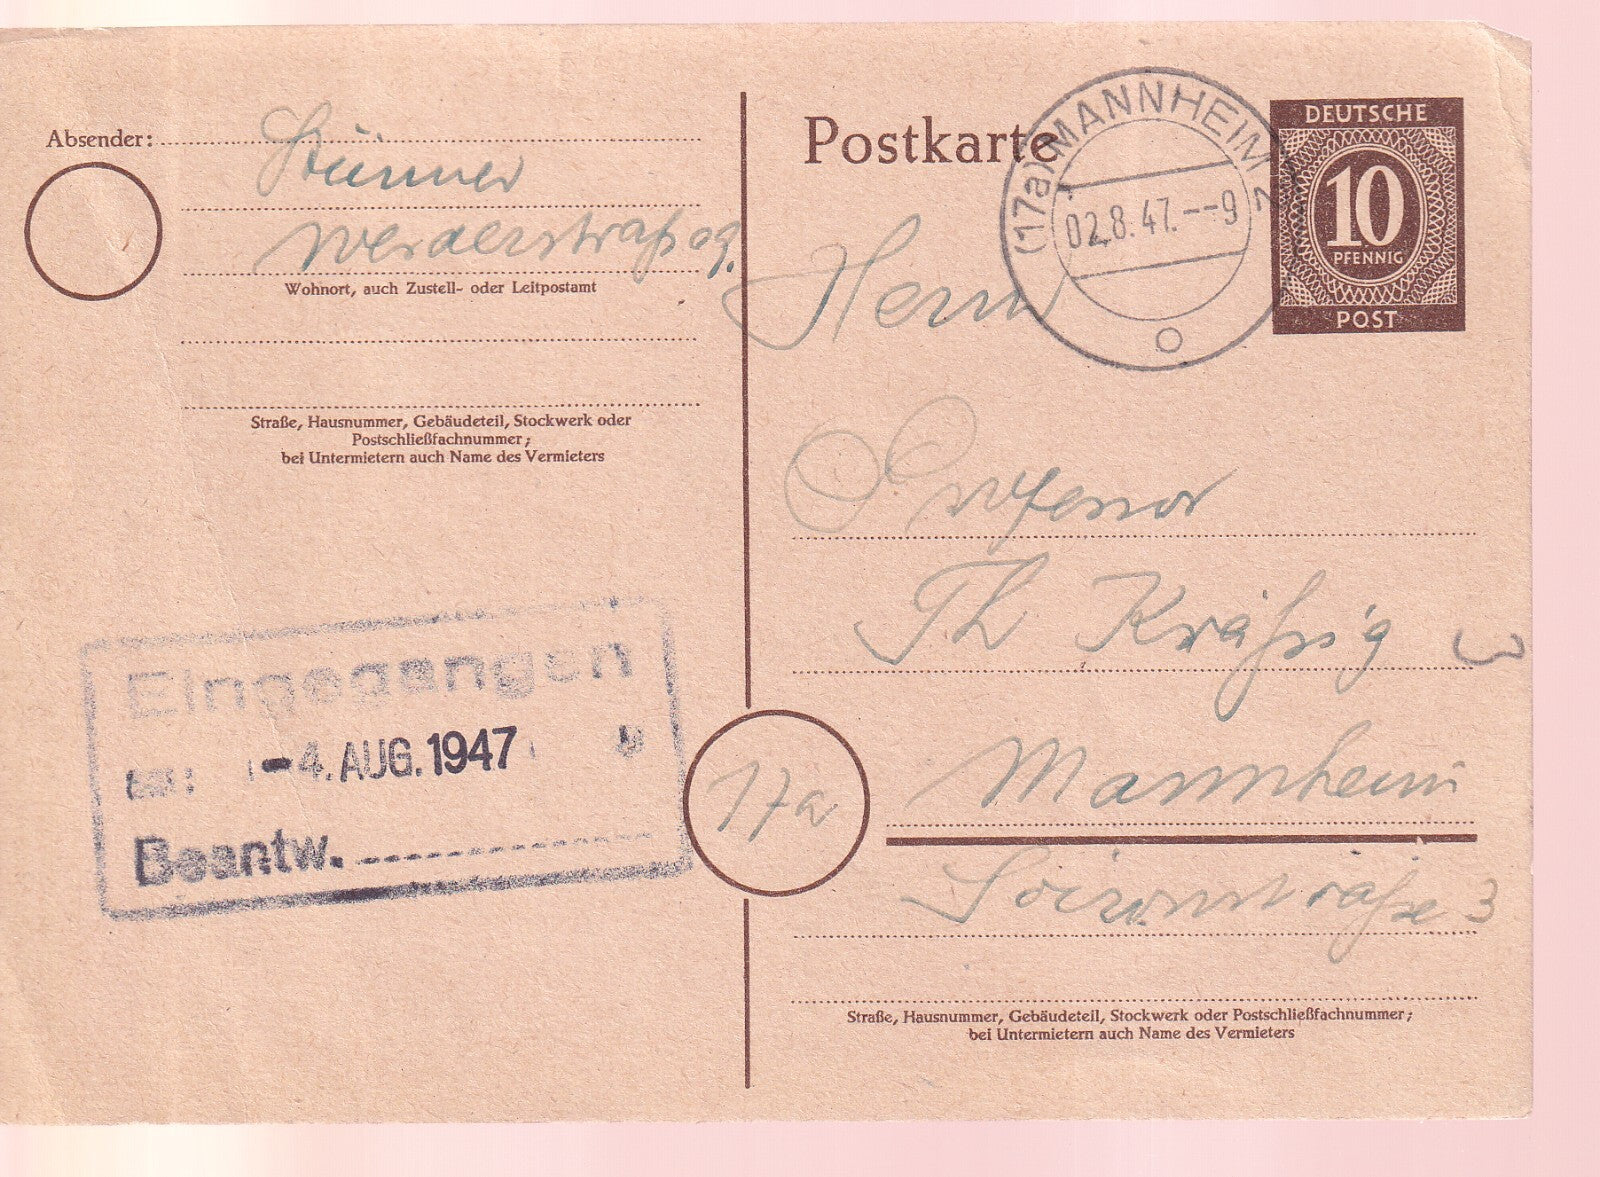 Absender:
Stürmer
Werderstraße
Wohnort, auch Zustell- oder Leitpostamt
Straße, Hausnummer, Gebäudeteil, Stockwerk oder
Postschließfachnummer;
bei Untermietern auch Name des Vermieters
Eingegangen
-4. AUG. 1947
Beantw.
Postkarte
(17a) MANNHEIM 2
02.8.47.--9
o
DEUTSCHE
10
PFENNIG
POST
Herrn
Professor
Th Kräßig
17a
Mannheim
3
Straße, Hausnummer, Gebäudeteil, Stockwerk oder Postschließfachnummer;
bei Untermietern auch Name des Vermieters